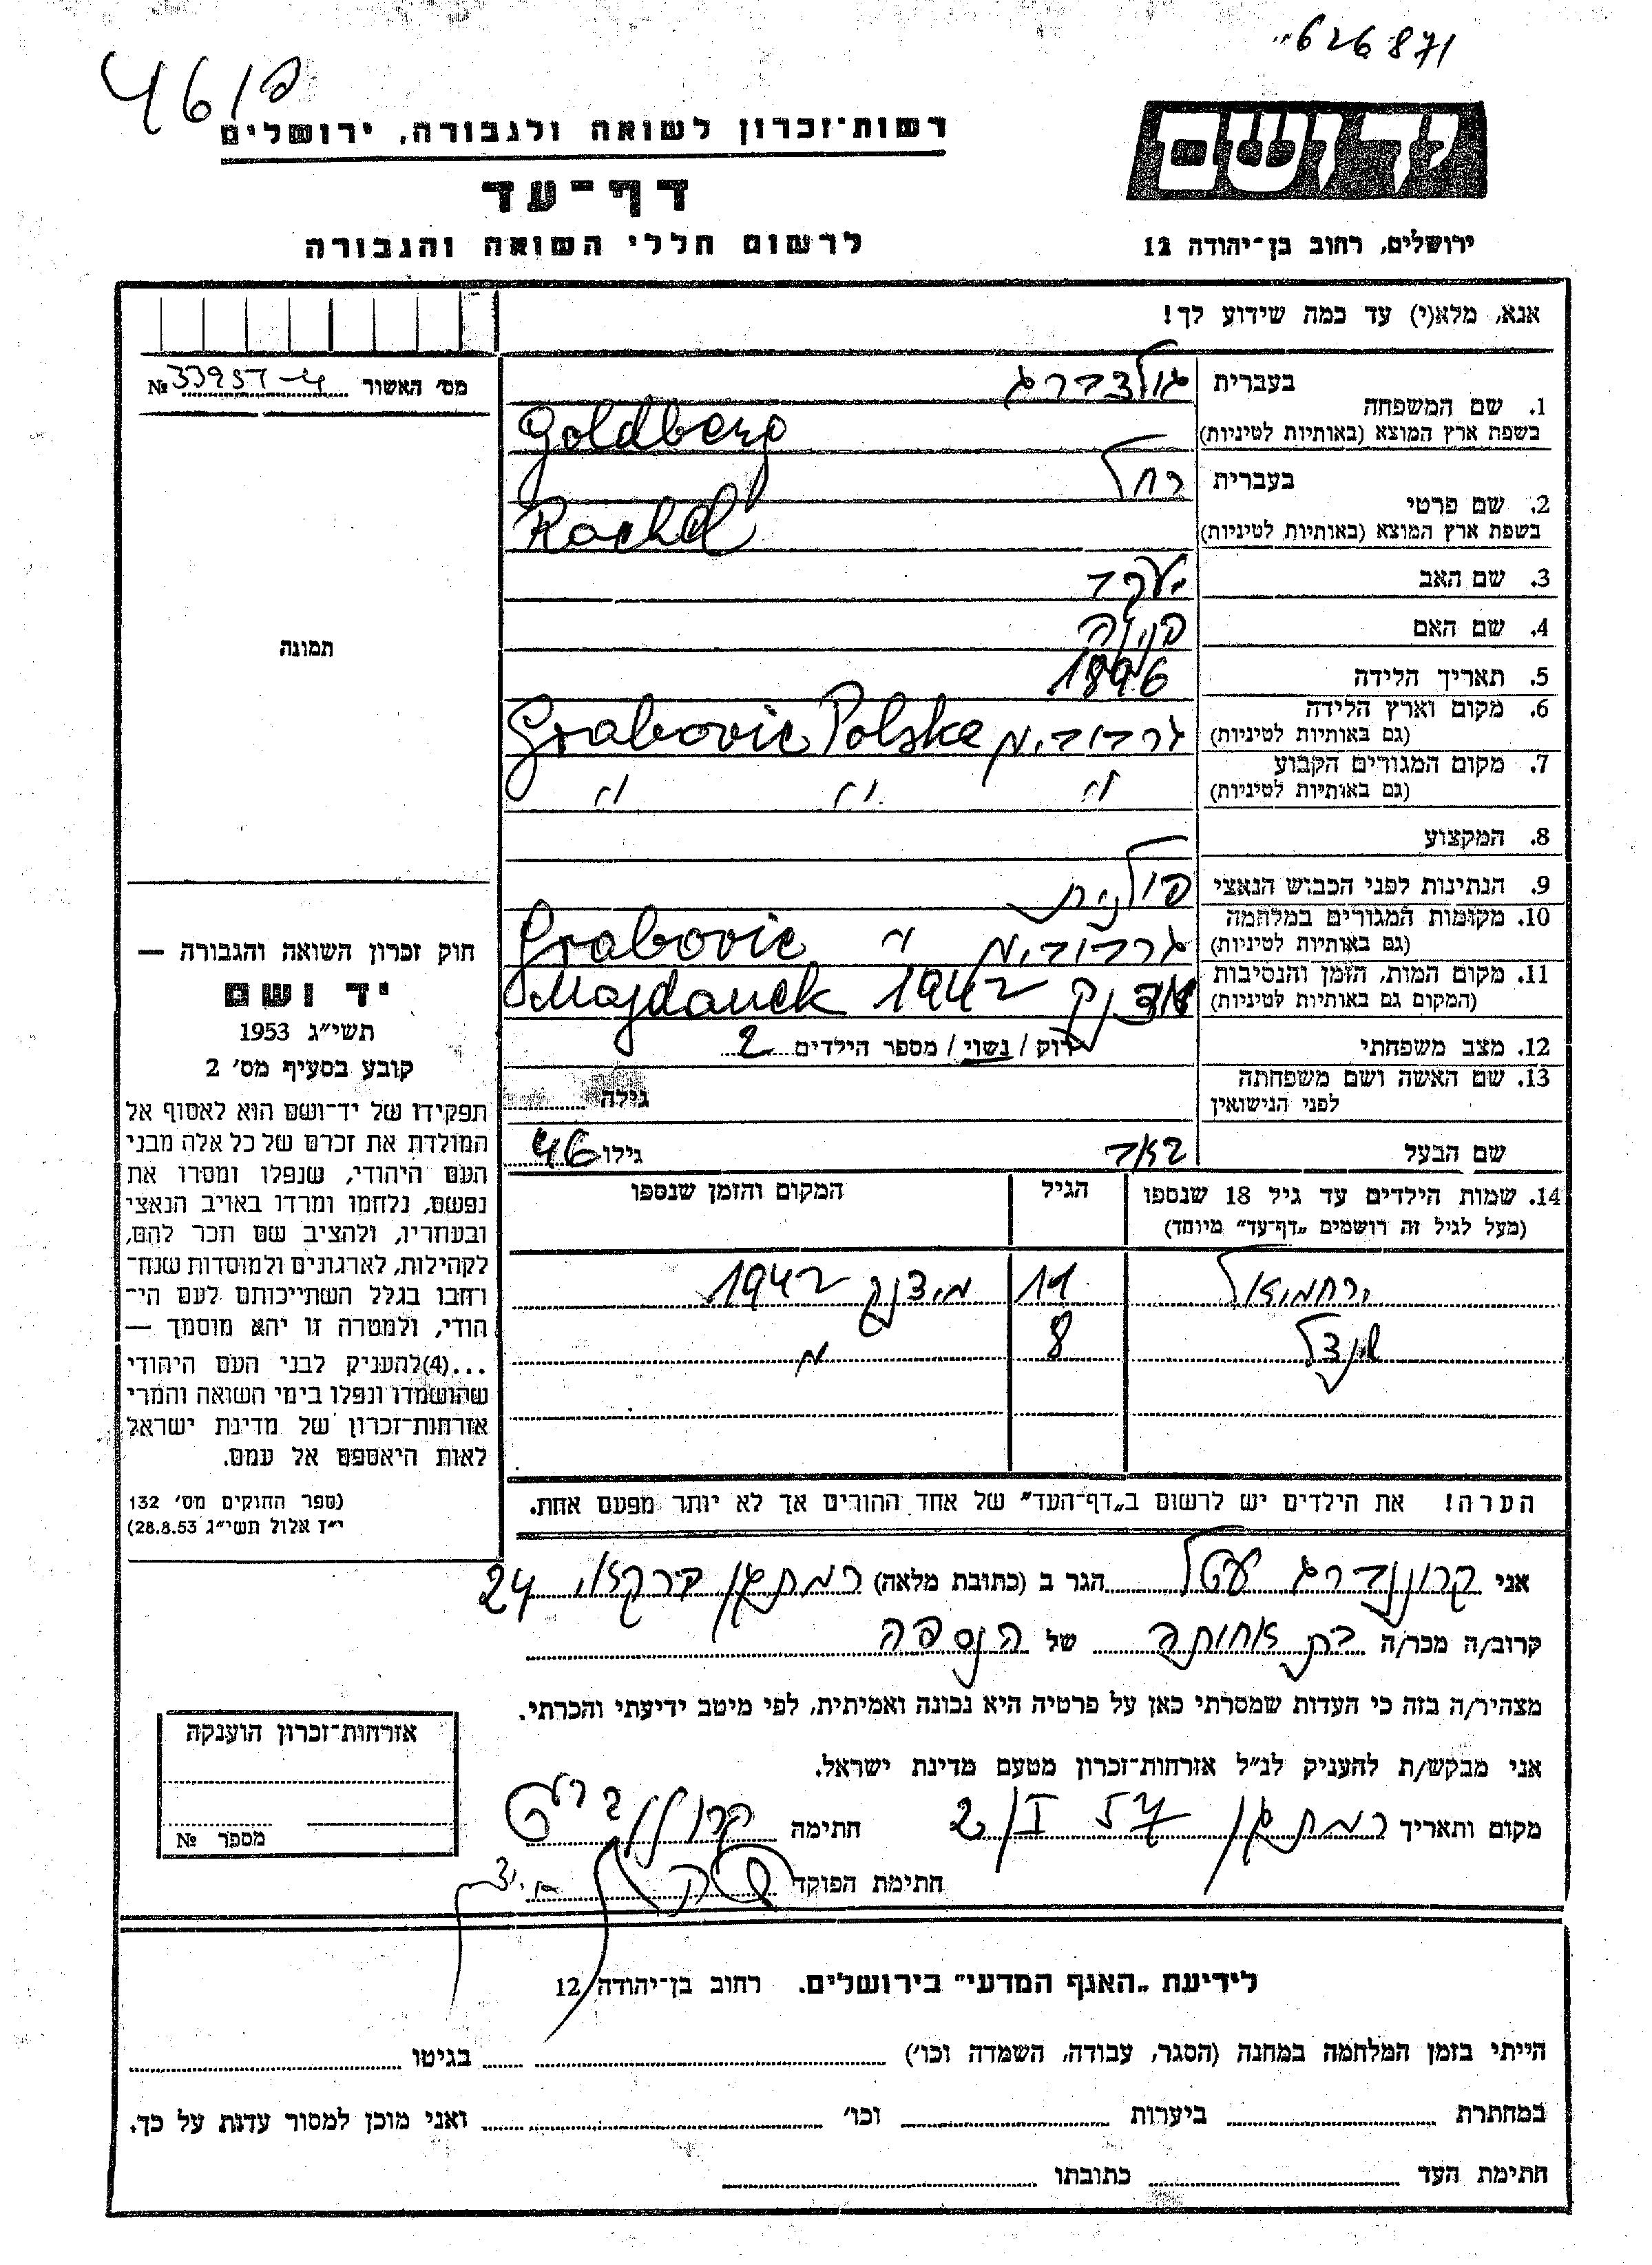 "626871
461פ
רשות־זכרון לשואה ולגבורה, ירושלים
דף־עד
לרשום חללי השואה והגבורה
יד ושם
ירושלים, רחוב בן־יהודה 12
אנא, מלא(י) עד כמה שידוע לך!
מס׳ האשור № 33957-4
1. שם המשפחה
בעברית גולדברג
בשפת ארץ המוצא (באותיות לטיניות) Goldberg
2. שם פרטי
בעברית רחל
בשפת ארץ המוצא (באותיות לטיניות) Rachel
3. שם האב יעקב
4. שם האם
5. תאריך הלידה 1896
6. מקום וארץ הלידה
(גם באותיות לטיניות) גרבוביץ Grabovic Polska
7. מקום המגורים הקבוע
(גם באותיות לטיניות) " " "
8. המקצוע
9. הנתינות לפני הכבוש הנאצי פולנית
10. מקומות המגורים במלחמה
(גם באותיות לטיניות) גרבוביץ " Grabovic
11. מקום המות, הזמן והנסיבות
(המקום גם באותיות לטיניות) 1942 Majdanek
12. מצב משפחתי רוק / נשוי / מספר הילדים 2
13. שם האשה ושם משפחתה
לפני הנישואין גילה
שם הבעל גילו 46
14. שמות הילדים עד גיל 18 שנספו הגיל המקום והזמן שנספו
(מעל לגיל זה רושמים „דף־עד״ מיוחד)
ירחמיאל 11 מידנק 1942
מנדל 8 "
הערה! את הילדים יש לרשום ב„דף־העד״ של אחד ההורים אך לא יותר מפעם אחת.
תמונה
חוק זכרון השואה והגבורה —
יד ושם
תשי״ג 1953
קובע בסעיף מס׳ 2
תפקידו של יד־ושם הוא לאסוף אל
המולדת את זכרם של כל אלה מבני
העם היהודי, שנפלו ומסרו את
נפשם, נלחמו ומרדו באויב הנאצי
ובעוזריו, ולהציב שם וזכר להם,
לקהילות, לארגונים ולמוסדות שנח־
רבו בגלל השתייכותם לעם הי־
הודי, ולמטרה זו יהא מוסמך —
...(4)להעניק לבני העם היהודי
שהושמדו ונפלו בימי השואה והמרי
אזרחות־זכרון של מדינת ישראל
לאות היאספם אל עמם.
(ספר החוקים מס׳ 132
י״ז אלול תשי״ג 28.8.53)
אני קרוננברג יעטל הגר ב (כתובת מלאה) רמת גן 24
קרוב/ה מכר/ה בת אחותה של הנספה
מצהיר/ה בזה כי העדות שמסרתי כאן על פרטיה היא נכונה ואמיתית, לפי מיטב ידיעתי והכרתי.
אני מבקש/ת להעניק לנ״ל אזרחות־זכרון מטעם מדינת ישראל.
מקום ותאריך רמת גן 2/I 57 חתימה
חתימת הפוקד
אזרחות־זכרון הוענקה
מספר №
לידיעת „האגף המדעי״ בירושלים. רחוב בן־יהודה 12
הייתי בזמן המלחמה במחנה (הסגר, עבודה, השמדה וכו׳) בגיטו
במחתרת ביערות וכו׳ ואני מוכן למסור עדות על כך.
חתימת העד כתובתו